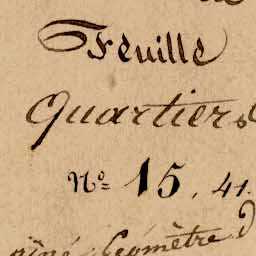 Feuille
Quartiers
N.º 15. 41.
Géomètre